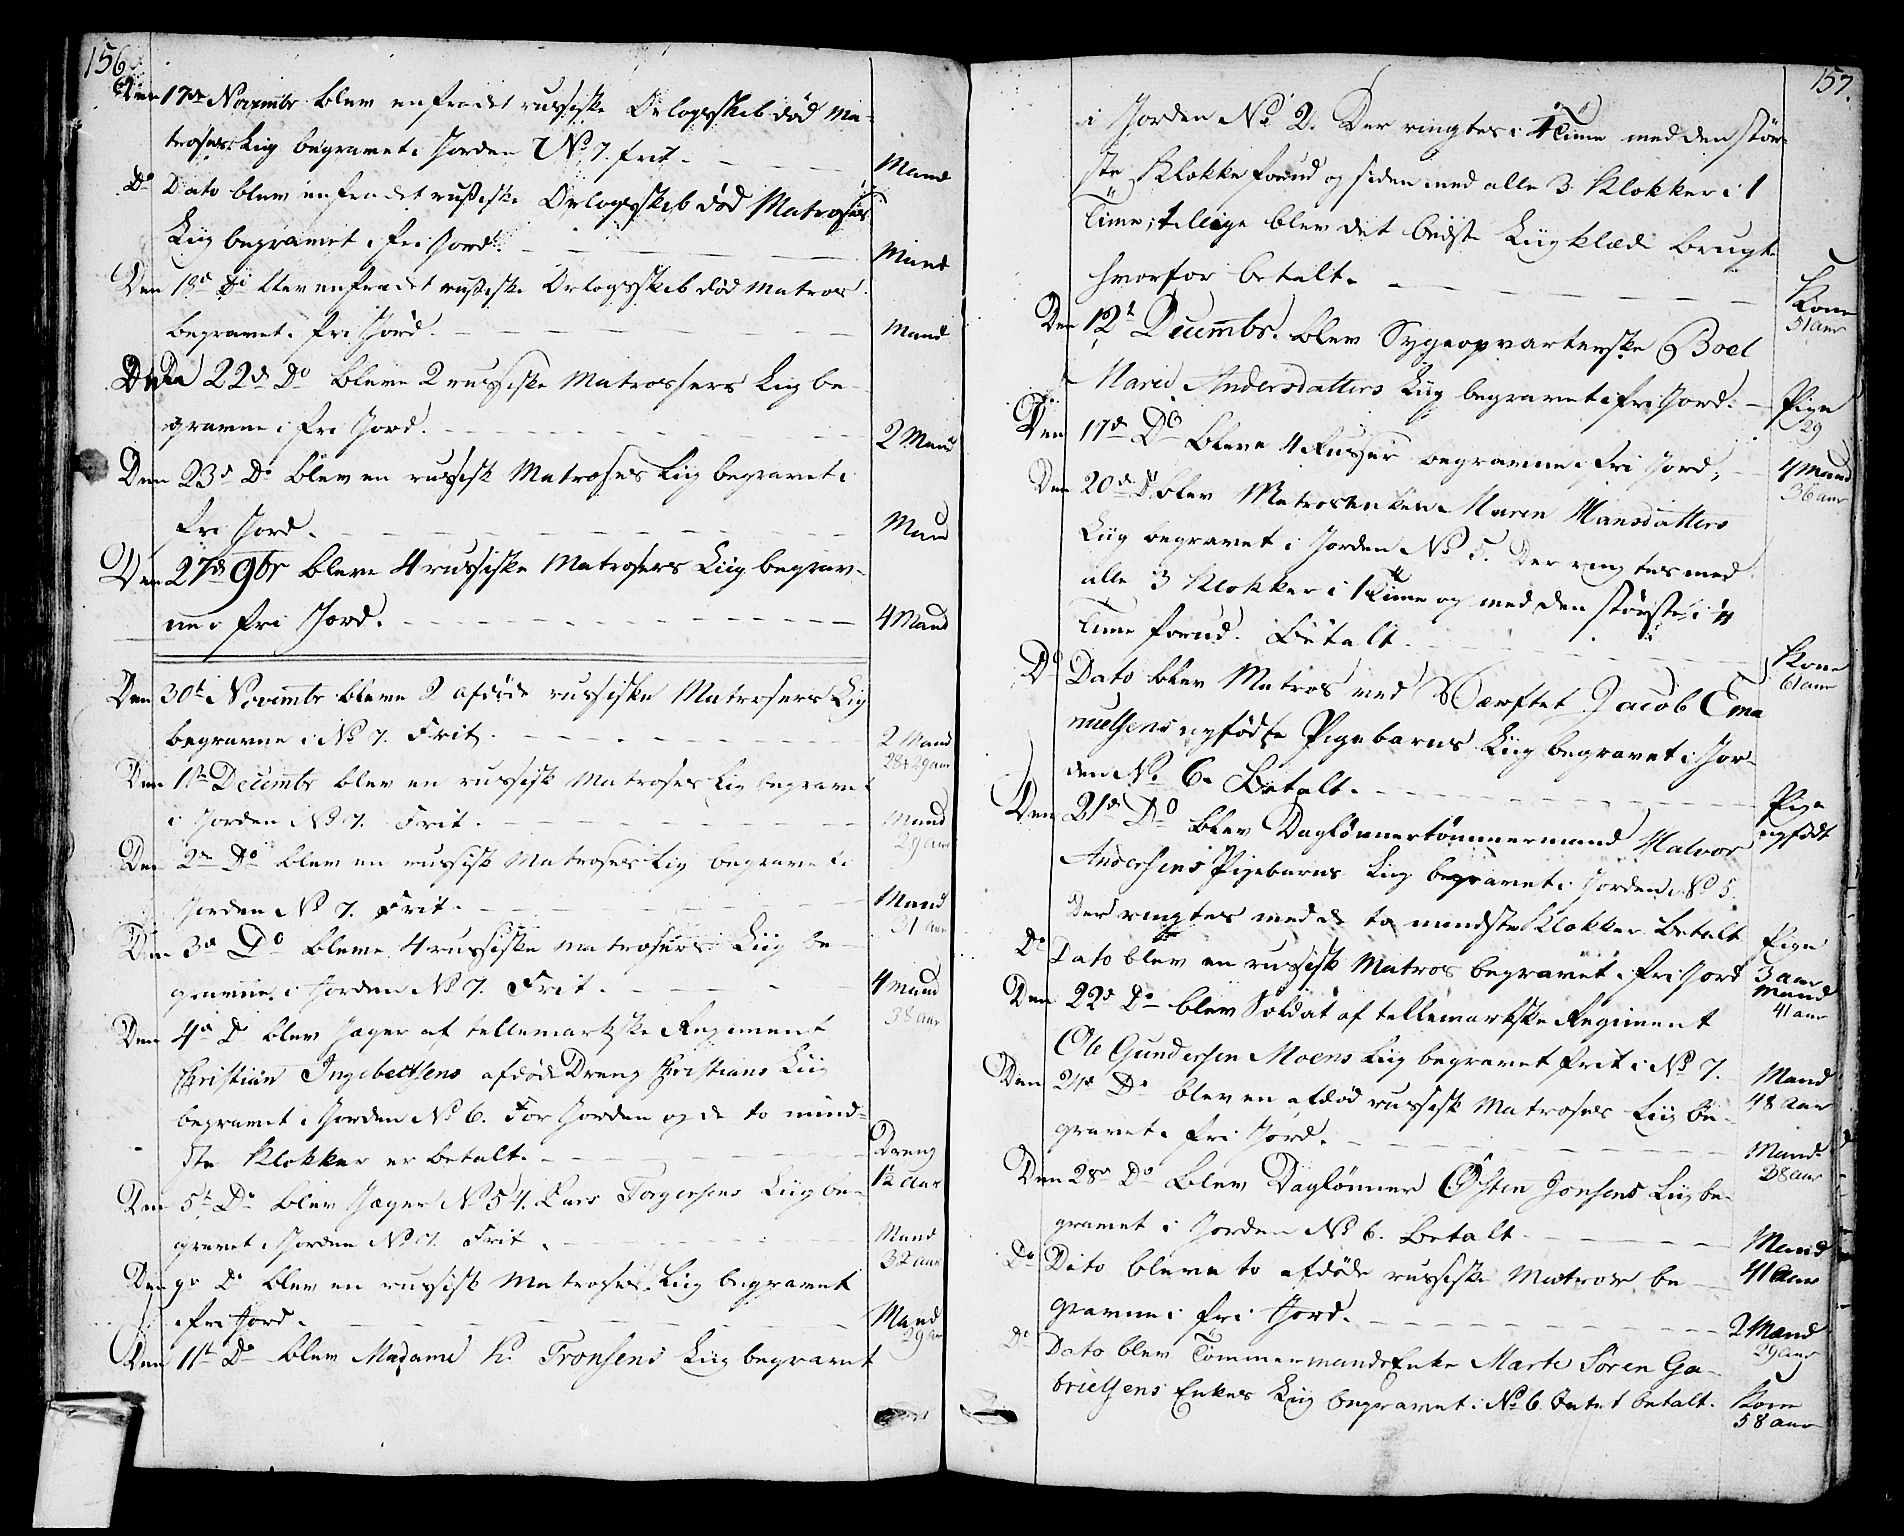 156.
Den 17de Novembr blev en fra det russiske Orlogsskib död Ma-
troses Liig begravet i Jorden No 7. frit. Mand
Do Dato blev en fra det russiske Orlogsskib död Matroses
Liig begravet i fri Jord. Mand
Den 18de Do blev en fra det russiske Orlogsskib död Matros
begravet i fri Jord. Mand
Den 22de Do bleve 2 russiske Matrossers Liig be-
gravne i fri Jord. 2 Mænd
Den 23de Do blev en russisk Matroses Liig begravet i
fri Jord. Mand
Den 27de 9br bleve 4 russiske Matrosers Liig begrav-
ne i fri Jord. 4 Mænd
Den 30te Novembr bleve 2 afdöde russiske Matrosers Liig
begravne i No 7. Frit. 2 Mænd
28 & 29 aar
Den 1te Decembr blev en russisk Matroses Liig begravet
i Jorden No 7. Frit. Mand
29 aar
Den 2de Do blev en russisk Matroses Liig begravet i
Jorden No 7. Frit. Mand
31 aar
Den 3de Do bleve 4 russiske Matrosers Liig be-
gravne i Jorden No 7. Frit. 4 Mænd
38 aar
Den 4de Do blev Jæger af tellemarkske Regiment
Christian Ingebretsens afdöde Dreng Christians Liig
begravet i Jorden No 6. For Jorden og de to mind-
ste Klokker er betalt. Dreng
1½ aar
Den 5te Do blev Jæger No 54. Lars Torgersens Liig be-
gravet i Jorden No 7. Frit. Mand
32 aar
Den 9de Do blev en russisk Matroses Liig begravet
i fri Jord. Mand
29 aar
Den 11te Do blev Madame N. Tronsens Liig begravet
157.
i Jorden No 2. Der ringtes i 1 Time med den stör-
ste Klokke forud og siden med alle 3 Klokker i 1
Time; tillige blev det bedste Liigklæde brugt
hvorfor betalt. Kone
51 aar
Den 12te Decembr. blev Sygeopvarterske Boel
Marie Andersdatters Liig begravet i fri Jord. Pige
29
Den 17de Do bleve 4 Russer begravne i fri Jord. 4 Mænd
36 aar
Den 20de Do blev Matrosenken Maren Hansdatters
Liig begravet i Jorden No 5. Der ringtes med
alle 3 Klokker i 1 Time og med den störste i ½
Time forud. Betalt. Kone
61 aar
Do Dato blev Matros ved Værftet Jacob Ema
nuelsens nyfödte Pigebarns Liig begravet i Jor-
den No 6. Betalt. Pige
nyfödt
Den 21de Do blev Daglönnertömmermand Halvor
Andersens Pigebarns Liig begravet i Jorden No 5.
Der ringtes med de to mindste Klokker. Betalt Pige
3 aar
Do Dato blev en russisk Matros begravet i fri Jord Mand
41 aar
Den 22de Do blev Soldat af tellemarkske Regiment
Ole Gundersen Moens Liig begravet frit i No 7. Mand
48 aar
Den 24de Do blev en afdöd russisk Matroses Liig be-
gravet i fri Jord. Mand
38 aar
Den 28de Do blev Daglönner Östen Jonsens Liig be-
gravet i Jorden No 6. Betalt. Mand
41 aar
Do Dito bleve to afdöde russiske Matroser be-
gravne i fri Jord. 2 Mænd
29 aar
Do Dato blev Tömmermands Enke Marte Sören Ga-
brielsens Enkes Liig begravet i No 6. Intet betalt. Kone
58 aar